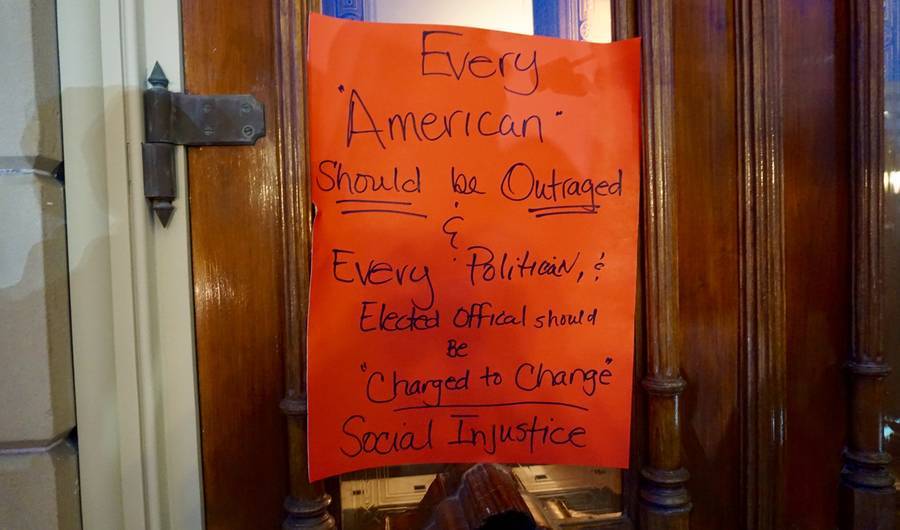 Every
"American"
Should be Outraged
&
Every Politician, &
Elected Offical should
Be
"Charged to Change"
Social Injustice